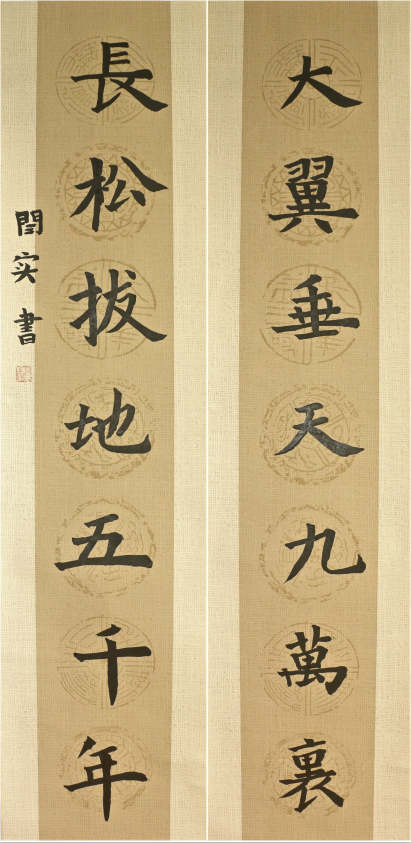 大翼垂天九萬裏
長松拔地五千年
閆实書